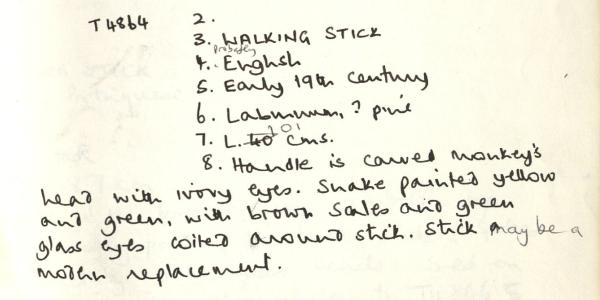 T4864 2.
3. WALKING STICK
Probably
4. English
5. Early 19th century
6. Laburnum, ? pine
7. L. 101 cms.
8. Handle is carved monkey's
head with ivory eyes. Snake painted yellow
and green, with brown scales and green
glass eyes coiled around stick. Stick may be a
modern replacement.